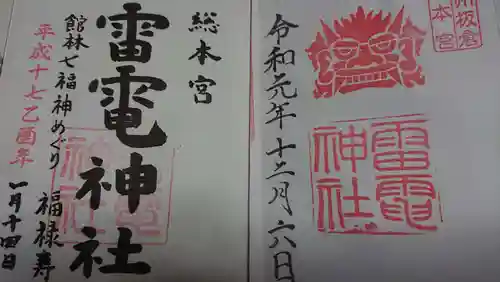 州板倉
本宮
雷電
神社
令和元年十二月六日
総本宮
雷電神社
館林七福神めぐり 福禄寿
平成十七乙酉年
一月十四日
雷電
神社